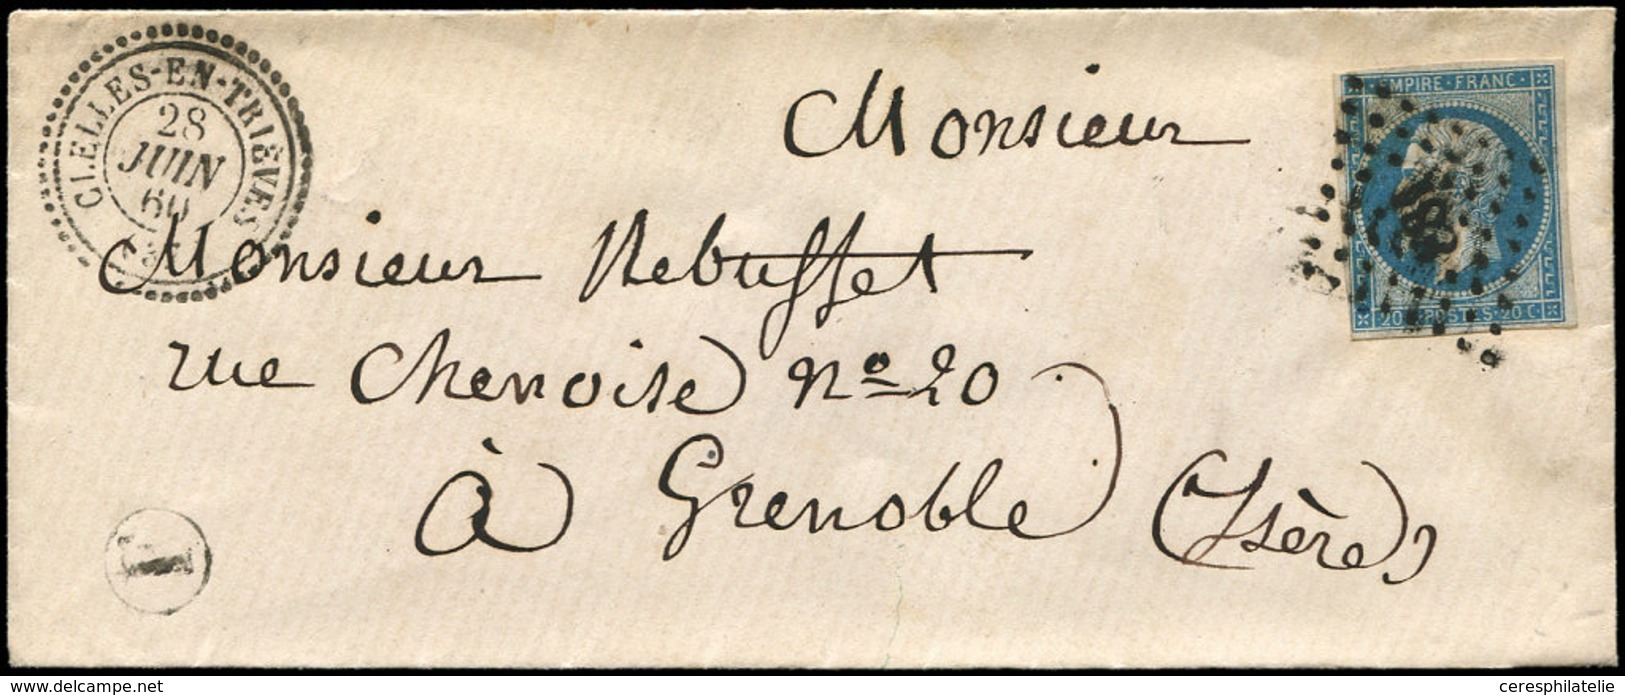 CLELLES-EN-TRIÈVES
28
JUIN
60
EMPIRE·FRANC·
20 C POSTES·20 C·
Monsieur
Monsieur Rebuffet
rue Chenoise nº 20
à Grenoble (Isère)
I
www.delcampe.net
ceresphilatelie